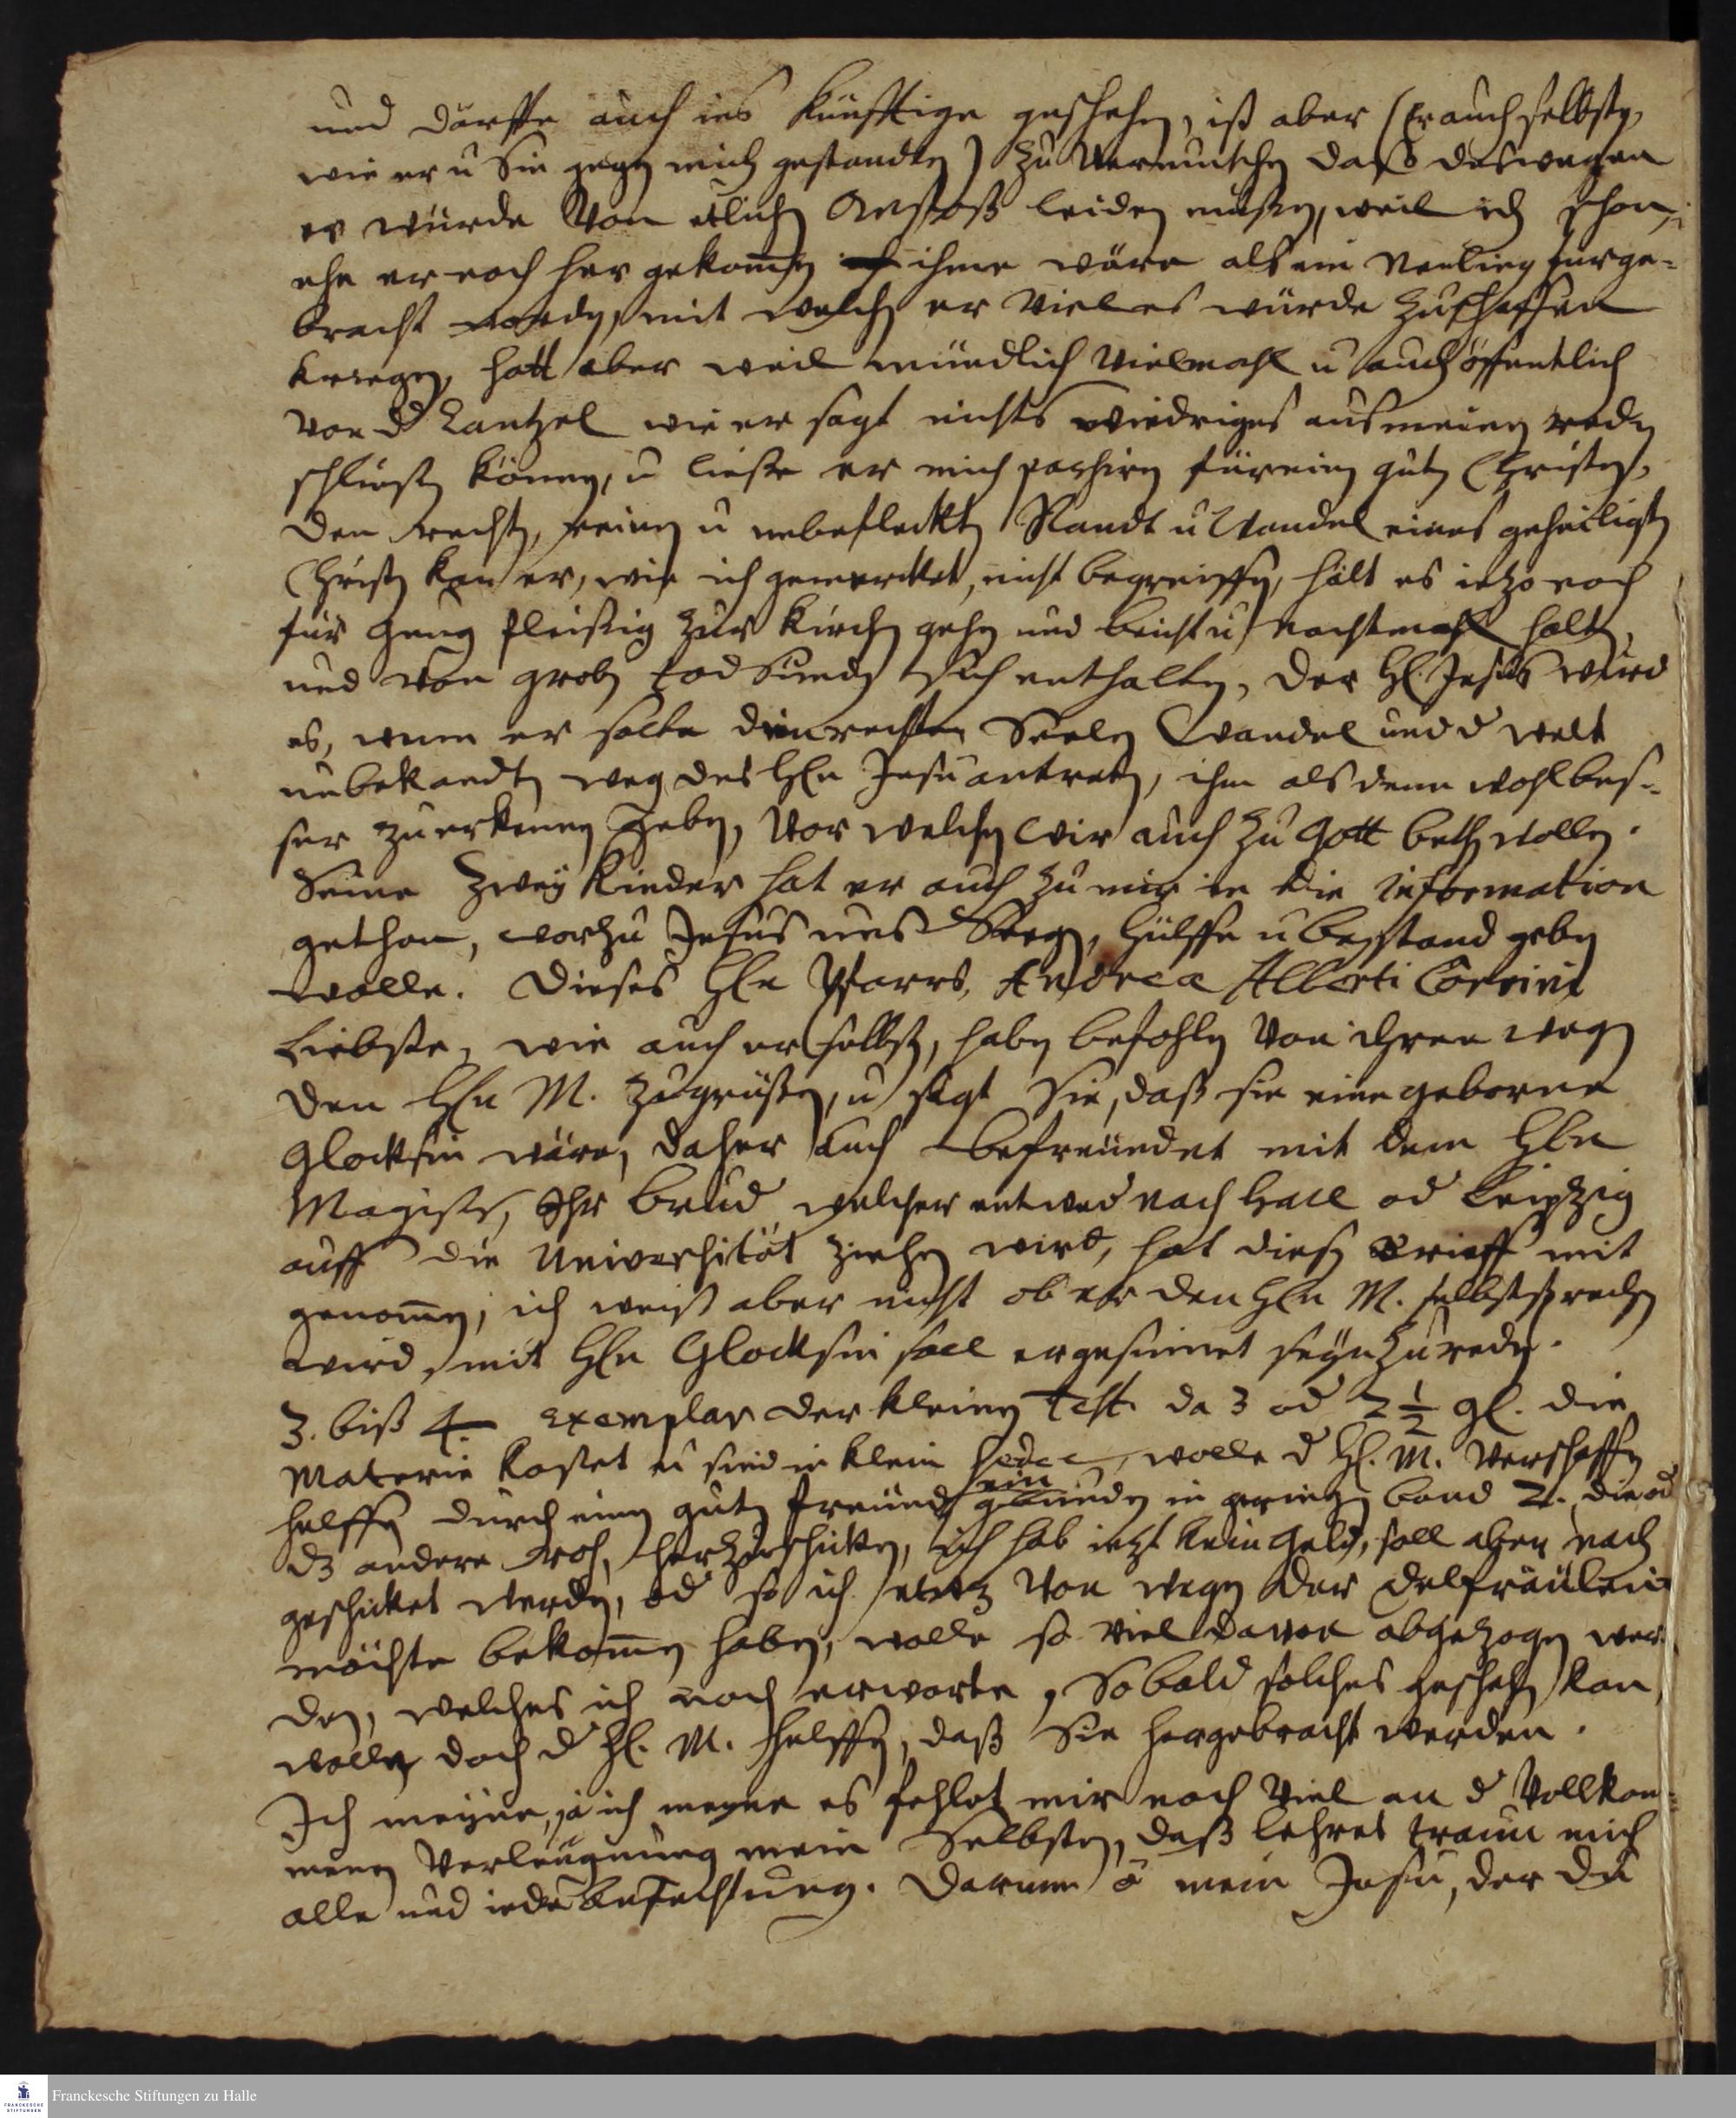 und dörffte auch ins künfftige geschehen, ist aber (Er auch selbsten,
wie er u Sie gegen mich gestanden) zu vermuthen daß deswegen
er würde von etlichen Anstoß leiden müßen, weil ich schon,
ehe er noch her gekom̄en ihme wäre als ein Neuling fürge-
bracht worden, mit welchen er vieles würde zuschaffen
kriegen, hatt aber weil mündlich vielmahl u auch öffentlich
von d Cantzel wie er sagt nichts wiedriges aus meinen reden
schließen können, u ließe er mich pachiren für einen guten Christen,
den rechten, reinen u unbefleckten Standt u Wandel eines geheiligten
Christen kan er, wie ich gemercket, nicht begreiffen, hält es ietzo noch
für genug fleißig zur Kirchen gehen und beicht u Nachtmahl halten,
und von groben todSünden sich enthalten, der H. Jesus wird
es, wenn er solte den rechten Seelen Wandel und d welt
unbekandten weg des HEn Jesu antreten, ihm als denn wohl bes-
ser zu erkennen geben, vor welchen wir auch zu Gott beten wollen.
Seine zwey Kinder hat er auch zu mir in die Information
gethan, worzu Jesus uns Seegen, Hülffe u beystand geben
wolle. Dieses HEn Pfarrs, Andrea Alberti Corvini
Liebste, wie auch er selbst, haben befohlen von ihren wegen
den HEn M. zugrüßen, u sagt Sie, daß sie eine geborne
Glocksin wäre, daher auch befreundet mit dem HEn
Magister, Ihr brud welcher entwed nach Hall od Leipzig
auff die Universität ziehen wird, hat diesen brieff mit
genom̄en, ich weiß aber nicht ob er den HEn M. selbst sprechen
wird, mit HEn Glocksin soll er gesinnet seyn zu reden.
3. biß 4. Exemplar der kleinen Test. da 3 od 2 1/2 gl. die
Materie kostet u sind in klein sedec, wolle d H. M. verschaffen
helffen durch einen guten freund ein gebunden in geringen band 2. die od
dz andere roh, herzuschicken, ich hab ietzt kein geld, soll aber nach
geschicket werden, od so ich etwz von wegen der Edelfräulein
möchte bekom̄en haben, wolle so viel davon abgezogen wer-
den, welches ich noch erwarte, Sobald solches geschehen kan,
wolle doch d H. M. helffen, daß Sie hergebracht werden.
Ich meyne, ja ich meyne es fehlet mir noch viel an d vollkom-
menen verleugnung mein Selbsten, daß lehret traun mich
alle und iede anfechtung. Darum ô mein Jesu, der du
Franckesche Stiftungen zu Halle
FRANCKESCHE
STIFTUNGEN